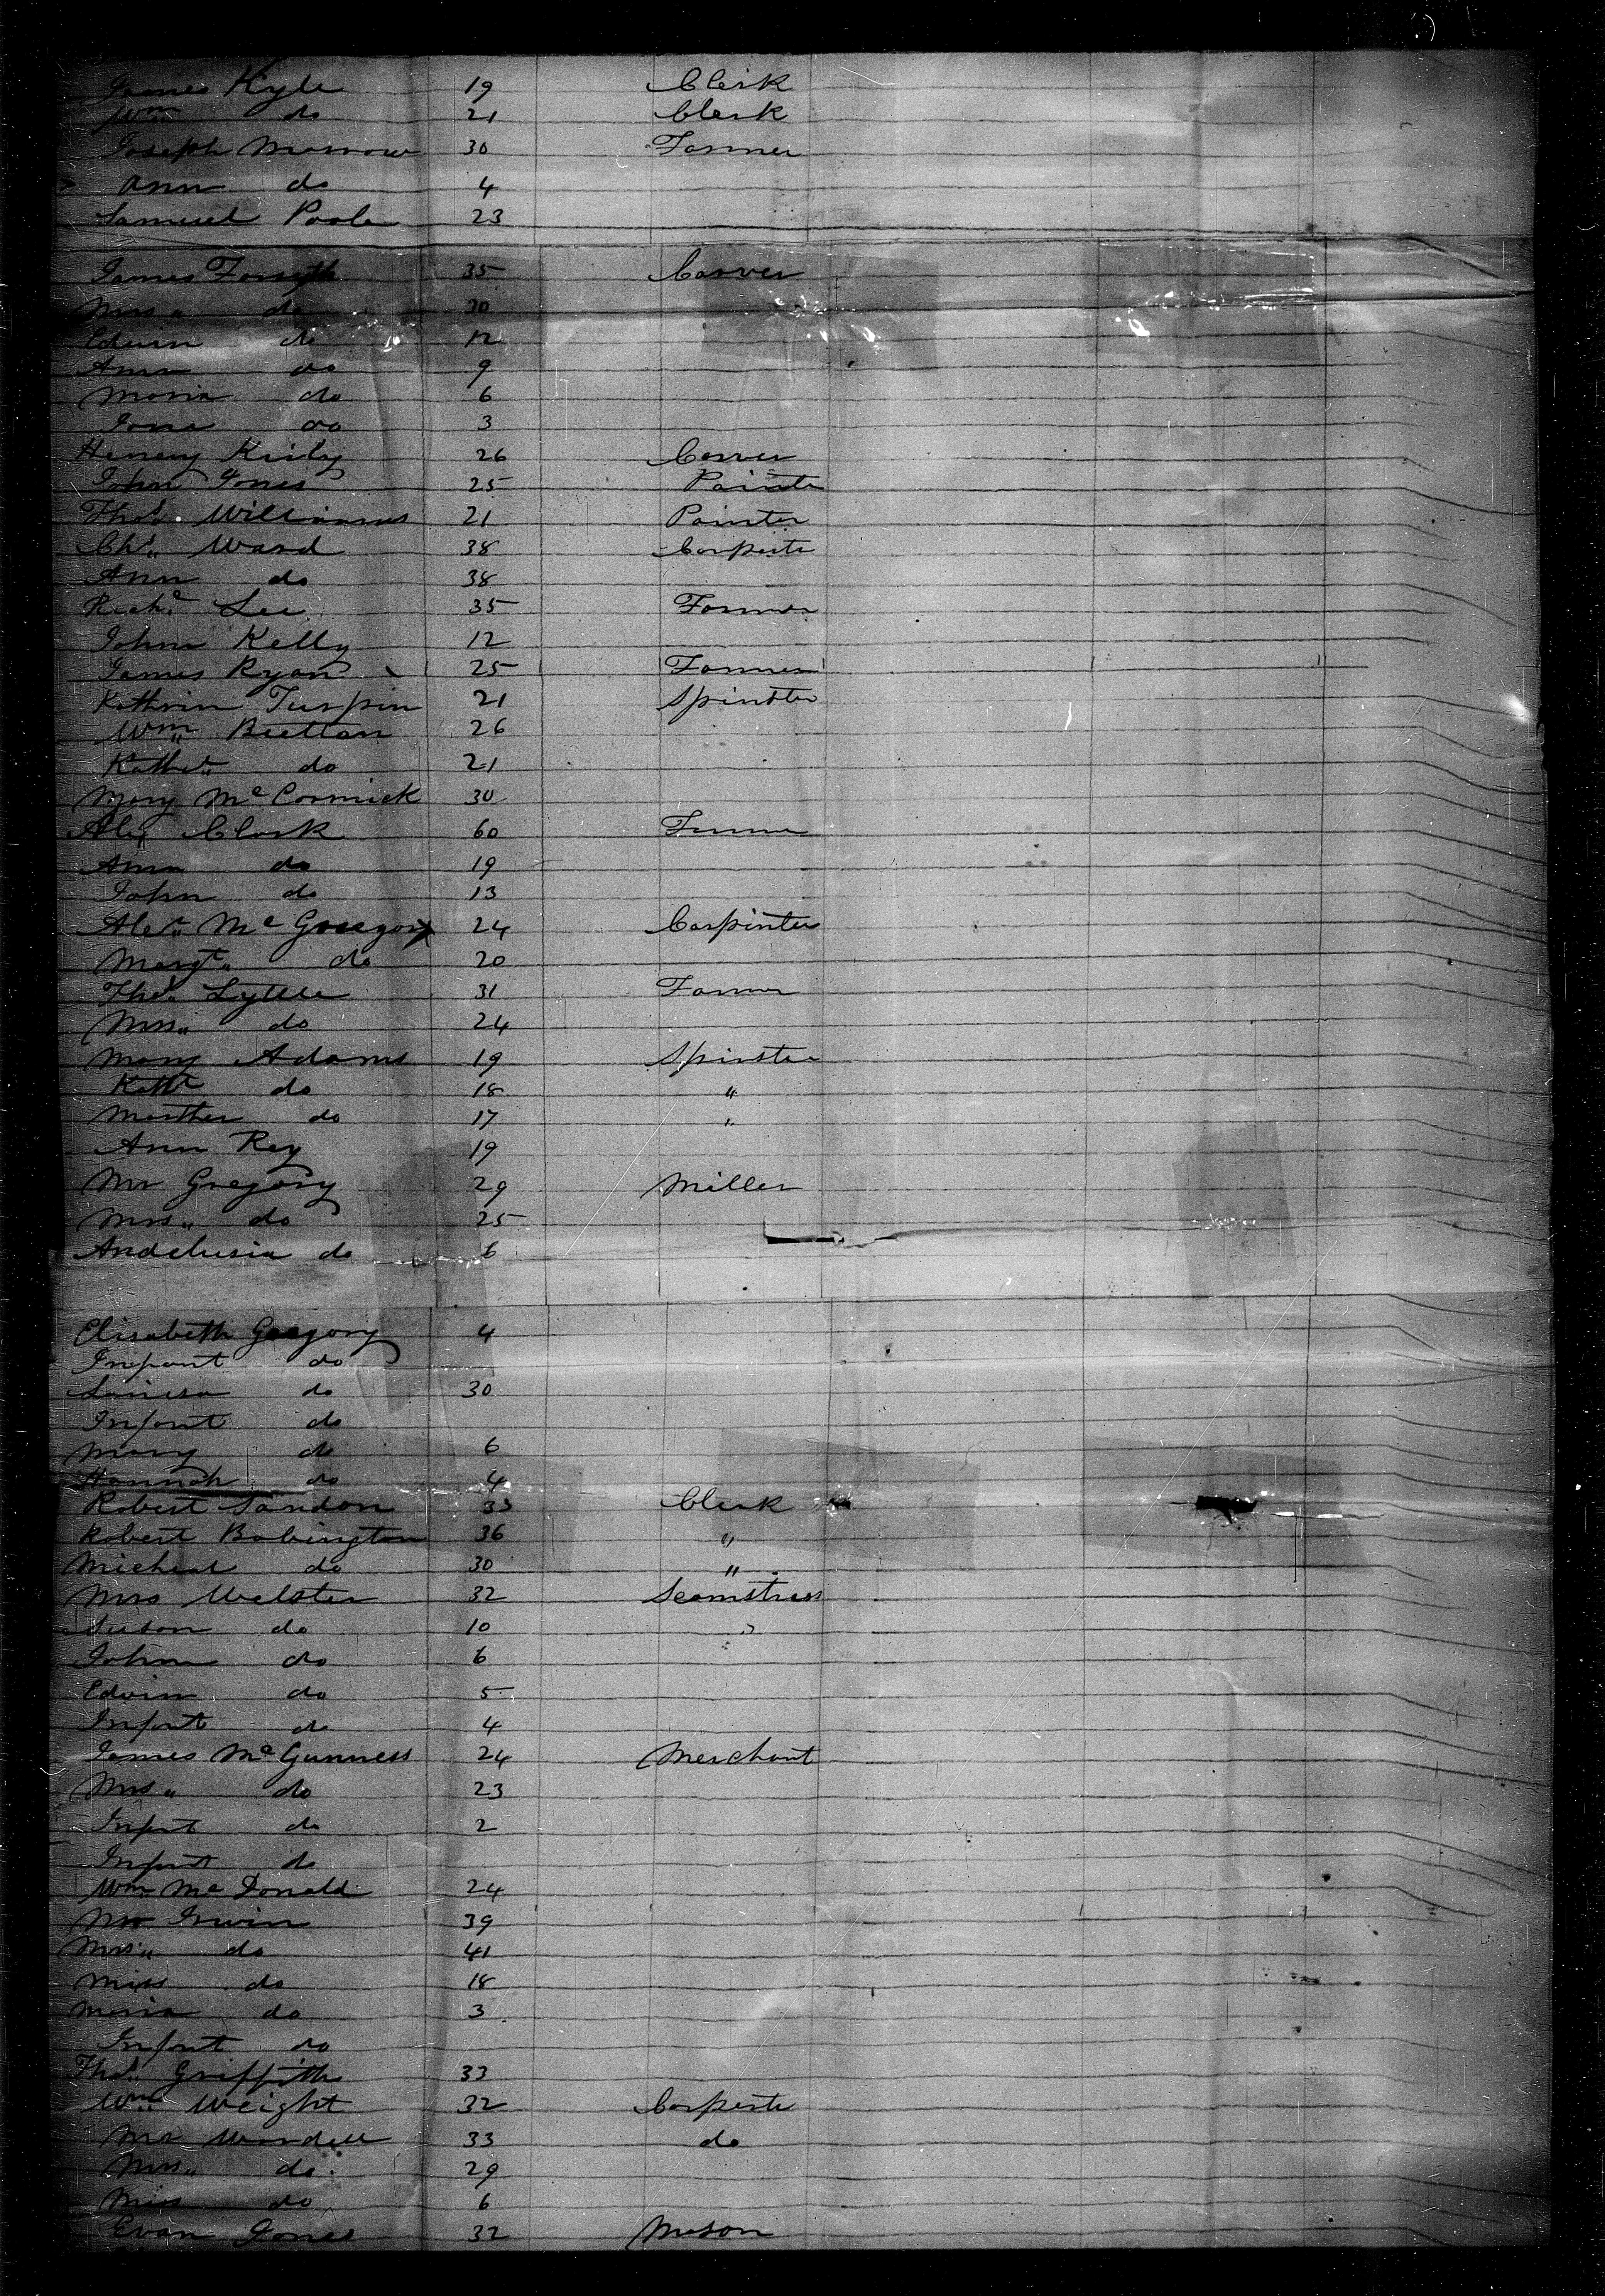 James Kyle 19 Clerk
Wm do 21 Clerk
Joseph Morrow 30 Farmer
Ann do 4
Samuel Poole 23
James Forsyth 35 Carver
Mrs " do 30
Edwin do 12
Ann do 9
Maria do 6
Jane do 3
Henery Kirby 26 Carver
John Jones 25 Painte
Thos. Williams 21 Painter
Chs. Ward 38 Carpente
Ann do 38
Richd Lee 35 Farmer
John Kelly 12
James Ryan 25 Farmer
Kathrin Turpin 21 Spinster
Wm Buttan 26
Kathe do 21
Mary Mc Cormick 30
Alex Clark 60 Farmer
Ann do 19
John do 13
Alex Mc Gregor 24 Carpinter
Margt do 20
Thos Lyttle 31 Farmer
Mrs " do 24
Mary Adams 19 Spinster
Kath do 18 "
Marther do 17 "
Ann Rey 19
Mr Gregory 29 Miller
Mrs " do 25
Andelusia do 6
Elisabeth Gregory 4
Infant do
Louisa do 30
Infant do
Mary do 6
Hannah do 4
Robert Sandon 33 Clerk
Robert Babington 36 "
Micheal do 30 "
Mrs Webster 32 Seamstress
Susan do 10 "
John do 6
Edwin do 5
Infant do 4
James Mc Gunness 24 Merchant
Mrs " do 23
Infant do 2
Infant do
Wm Mc Donald 24
Mr Irwin 39
Mrs " do 41
Miss do 18
Maria do 3
Infant do
Thos Griffith 33
Wm Weight 32 Carpente
Mr Wardell 33 do
Mrs " do 29
Miss do 6
Evan Jones 32 Mason